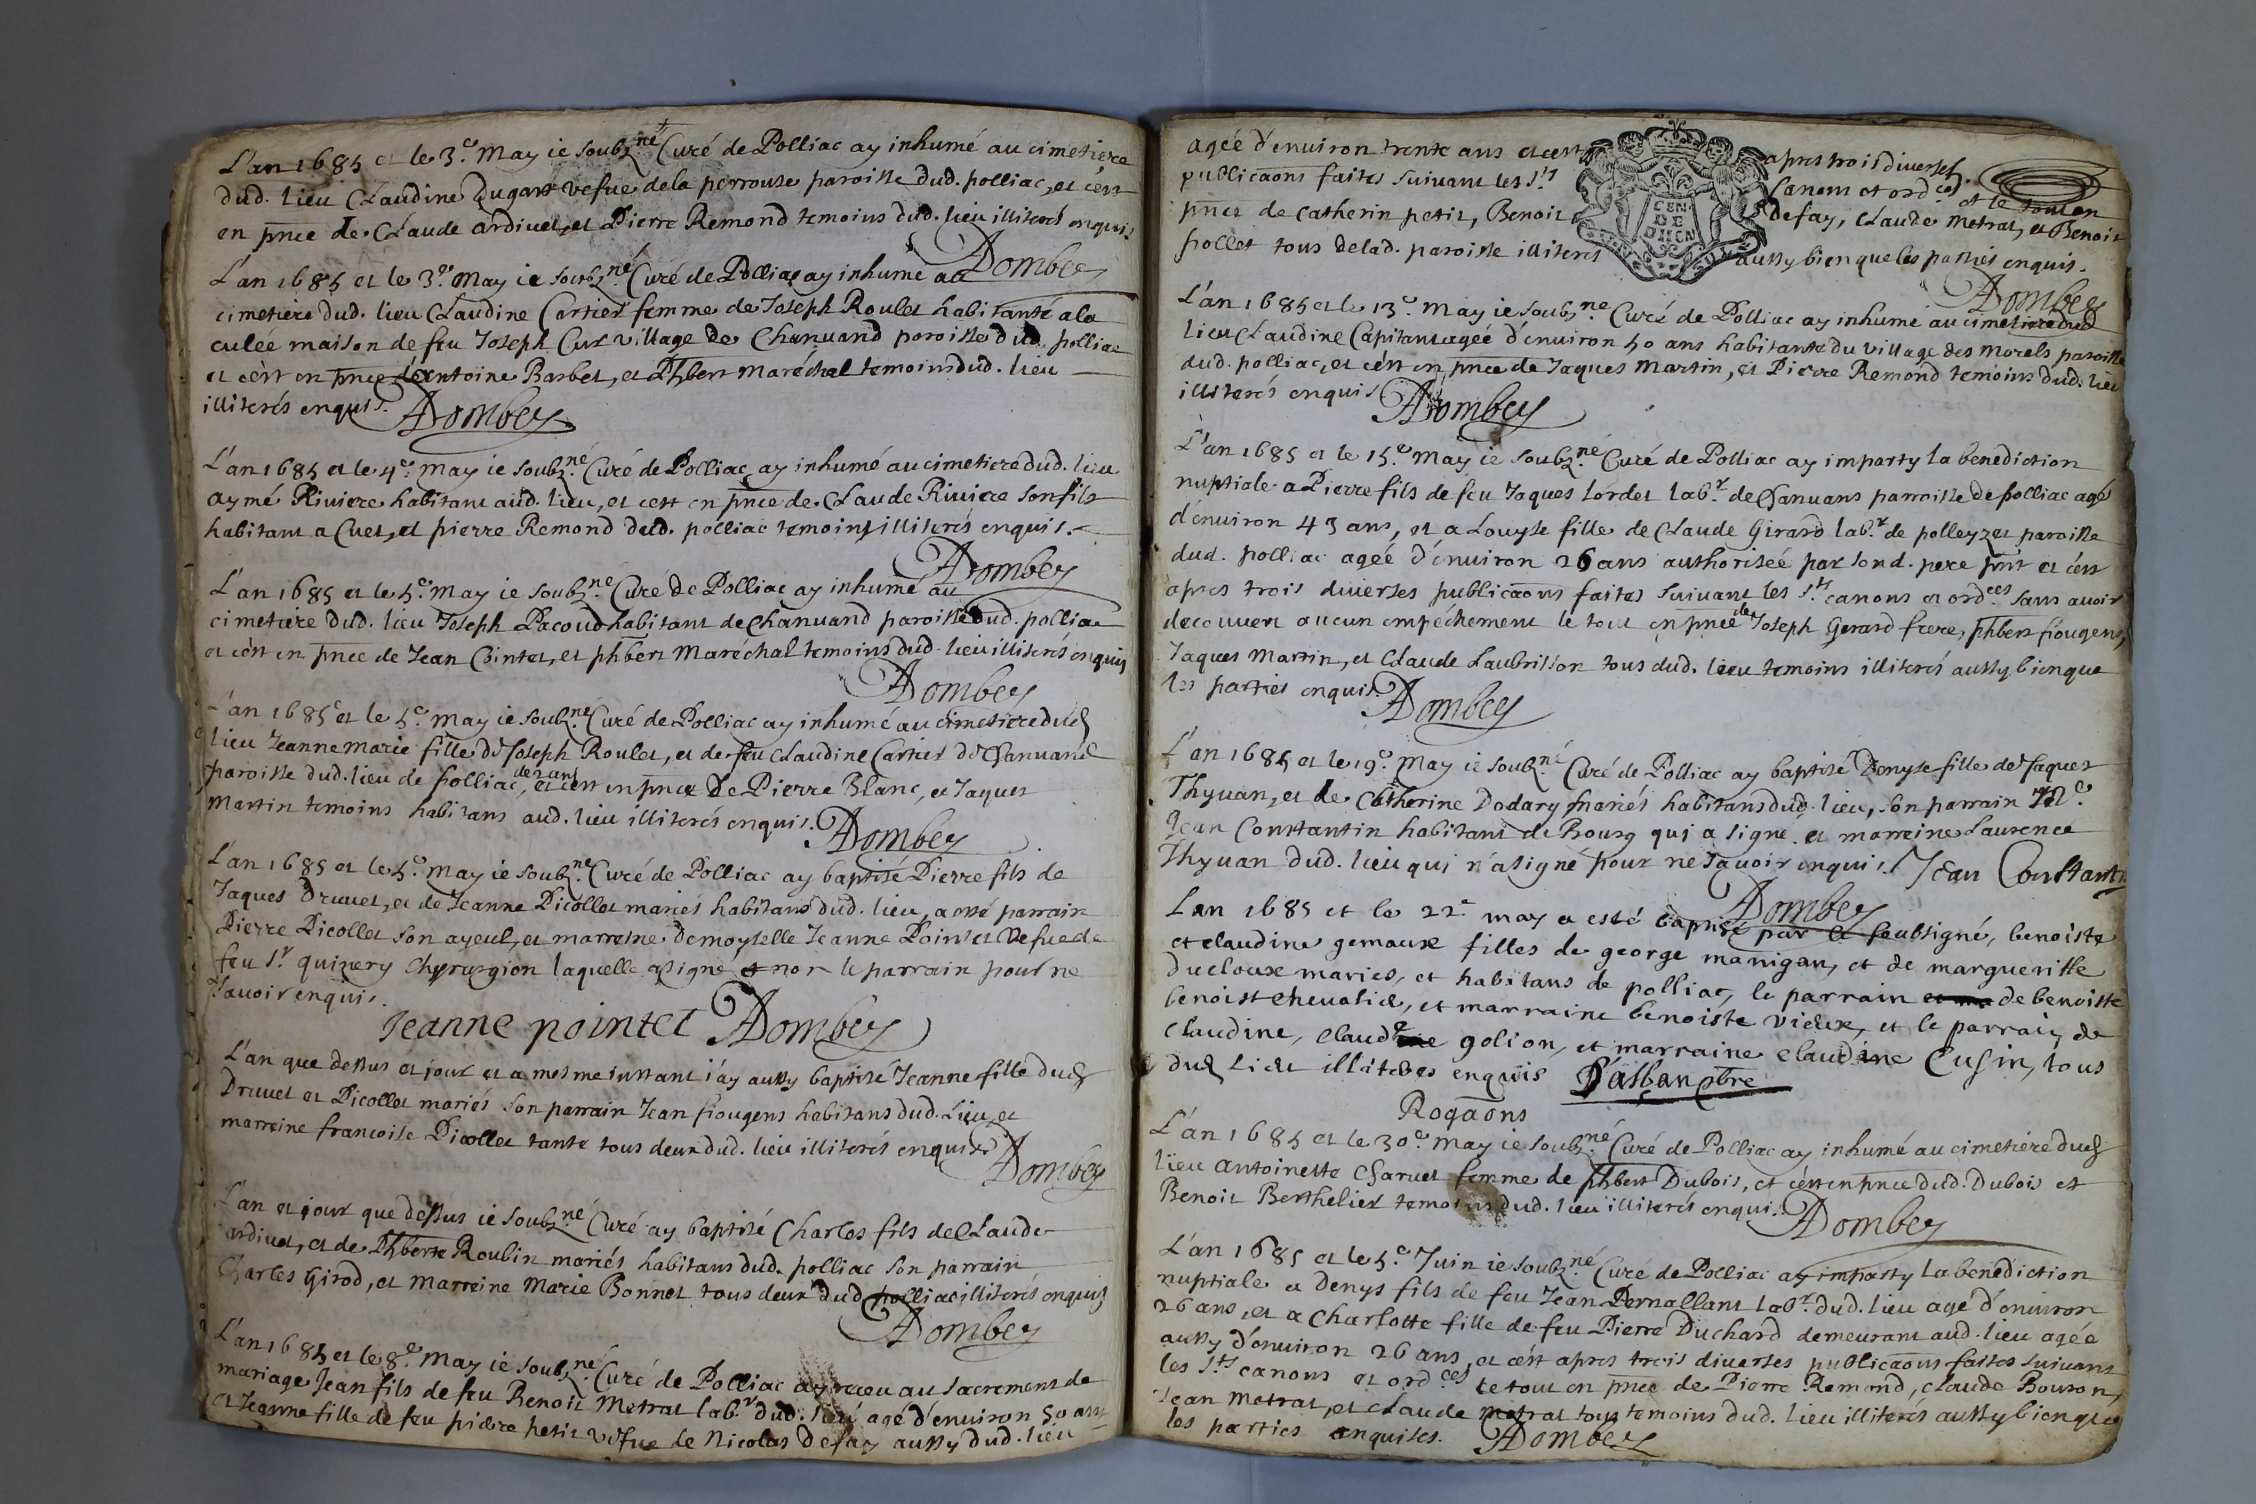 L'an 1685 et le 3.e May ie soubz.né Curé de Polliac ay inhumé au cimetiere
dud. lieu Claudine Dugast vefue de la perrouse paroisse dud. polliac, et c'est
en pnce de Claude ardiuet, et Pierre Remond temoins dud. lieu illiterés enquis
Dombey
L'an 1685 et le 3.e May ie soubz.né Curé de Polliac ay inhumé au
cimetiere dud. lieu Claudine Cartier femme de Joseph Roulet habitante a la
culée maison de feu Joseph Cur village de Chanuand paroisse dud. polliac
et c'est en pnce d'Antoine Barbet, et Phbert Maréchal temoins dud. lieu
illiterés enquis. Dombey
L'an 1685 et le 4.e May ie soubz.né Curé de Polliac ay inhumé au cimetiere dud. lieu
aymé Riuiere habitant aud. lieu, et c'est en pnce de Claude Riuiere son fils
habitant a Cuet, et pierre Remond dud. polliac temoins illiterés enquis.
Dombey
L'an 1685 et le 5.e May ie soubz.né Curé de Polliac ay inhumé au
cimetiere dud. lieu Joseph Pacoud habitant de Chanuand paroisse dud. polliac
et c'est en pnce de Jean Cointet, et phbert Maréchal temoins dud. lieu illiterés enquis
Dombey
L'an 1685 et le 5.e May ie soubz.né Curé de Polliac ay inhumé au cimetiere dud
lieu Jeanne marie fille de Joseph Roulet, et de feu Claudine Cartier de Chanuand
paroisse dud. lieu de polliac, de 2 ans et c'est en pnce de Pierre Blanc, et Jaques
Martin temoins habitans aud. lieu illiterés enquis. Dombey
L'an 1685 et le 5.e May ie soubz.né Curé de Polliac ay baptisé Pierre fils de
Jaques Druuet, et de Jeanne Picollet mariés habitans dud. lieu, a esté parrain
Pierre Picollet son ayeul, et marreine demoyselle Jeanne Pointet Vefue de
feu Sr quinery Chyrurgion laquelle a signé et non le parrain pour ne
sauoir enquis.
Jeanne pointet Dombey
L'an que dessus et jour et a mesme instant i'ay aussy baptisé Jeanne fille dud
Druuet et Picollet mariés son parrain Jean fiougens habitans dud. lieu, et
marreine francoise Picollet tante tous deux dud. lieu illiterés enquis.
Dombey
L'an et jour que dessus ie soubz.né Curé ay baptisé Charles fils de Claude
ardiuet, et de Phberte Roulin mariés habitans dud. polliac son parrain
Charles Girod, et Marreine Marie Bonnet tous deux dud polliac illiterés enquis
Dombey
L'an 1685 et le 8.e May ie soubz.né Curé de Polliac ay receu au sacrement de
mariage Jean fils de feu Benoit Metrat lab.r dud. lieu agé d'enuiron 50 ans
et Jeanne fille de feu pierre petit vefue de Nicolas Defay aussy dud. lieu
agée d'enuiron trente ans et c'est apres trois diuerses
publicaons faites suiuant les Sts Canons et ordces et le tout en
pnce de Catherin petit, Benoit defay, Claude Metrat, et Benoit
pollet tous de lad. paroisse illiterés aussy bien que les parties enquis.
Dombey
L'an 1685 et le 13.e May ie soubz.né Curé de Polliac ay inhumé au cimetiere dud
lieu Claudine Capitant agée d'enuiron 50 ans habitante du village des Morels paroisse
dud. polliac, et c'est en pnce de Jaques Martin, et Pierre Remond temoins dud. lieu
illiterés enquis Dombey
L'an 1685 et le 15.e May ie soubz.né Curé de Polliac ay imparty la benediction
nuptiale a Pierre fils de feu Jaques Lordet lab.r de Chanuans parroisse de polliac agé
d'enuiron 43 ans, et a Louyse fille de Claude Girard lab.r de polleyzet paroisse
dud. polliac agée d'enuiron 26 ans authorisée par sond. pere pnt et c'est
apres trois diuerses publicaons faites suiuant les Sts canons et ordces sans auoir
decouuert aucun empéchement le tout en pnce de Joseph Gerard frere, phbert fiougens,
Jaques Martin, et Claude Laubrisson tous dud. lieu temoins illiterés aussy bien que
les parties enquis. Dombey
L'an 1685 et le 19.e May ie soubz.né Curé de Polliac ay baptisé Denyse fille de Jaques
Thyuan, et de Catherine Dodary mariés habitans dud. lieu, son parrain M.e
Jean Constantin habitant de Bourg qui a signé et marreine Laurence
Thyuan dud. lieu qui n'a signé pour ne sauoir enquis. Jean Constantin
Dombey
Lan 1685 et le 22.e may a esté baptisé par le soubsigné, benoiste
et claudine gemaux filles de george manigan, et de margueritte
ducloux mariés, et habitans de polliac, le parrain de benoiste
benoist cheualié, et marraine benoiste vieux, et le parrain de
claudine, claude golion, et marraine claudine Cusin, tous
dud lieu illiteres enquis Dalban pbre
Rogaons
L'an 1685 et le 30.e May ie soubz.né Curé de Polliac ay inhumé au cimetiere dud
lieu Antoinette Charuet femme de phbert Dubois, et c'est en pnce dud. Dubois et
Benoit Berthelier temoins dud. lieu illiterés enquis. Dombey
L'an 1685 et le 5.e Juin ie soubz.né Curé de Polliac ay imparty la benediction
nuptiale a Denys fils de feu Jean Pernallant lab.r dud. lieu agé d'enuiron
26 ans, et a Charlotte fille de feu Pierre Duchard demeurant aud. lieu agée
aussy d'enuiron 26 ans, et c'est apres trois diuerses publicaons faites suiuant
les Sts canons et ordces le tout en pnce de Pierre Remond, Claude Bouron,
Jean Metrat, et Claude Metrat tous temoins dud. lieu illiterés aussy bien que
les parties enquises. Dombey